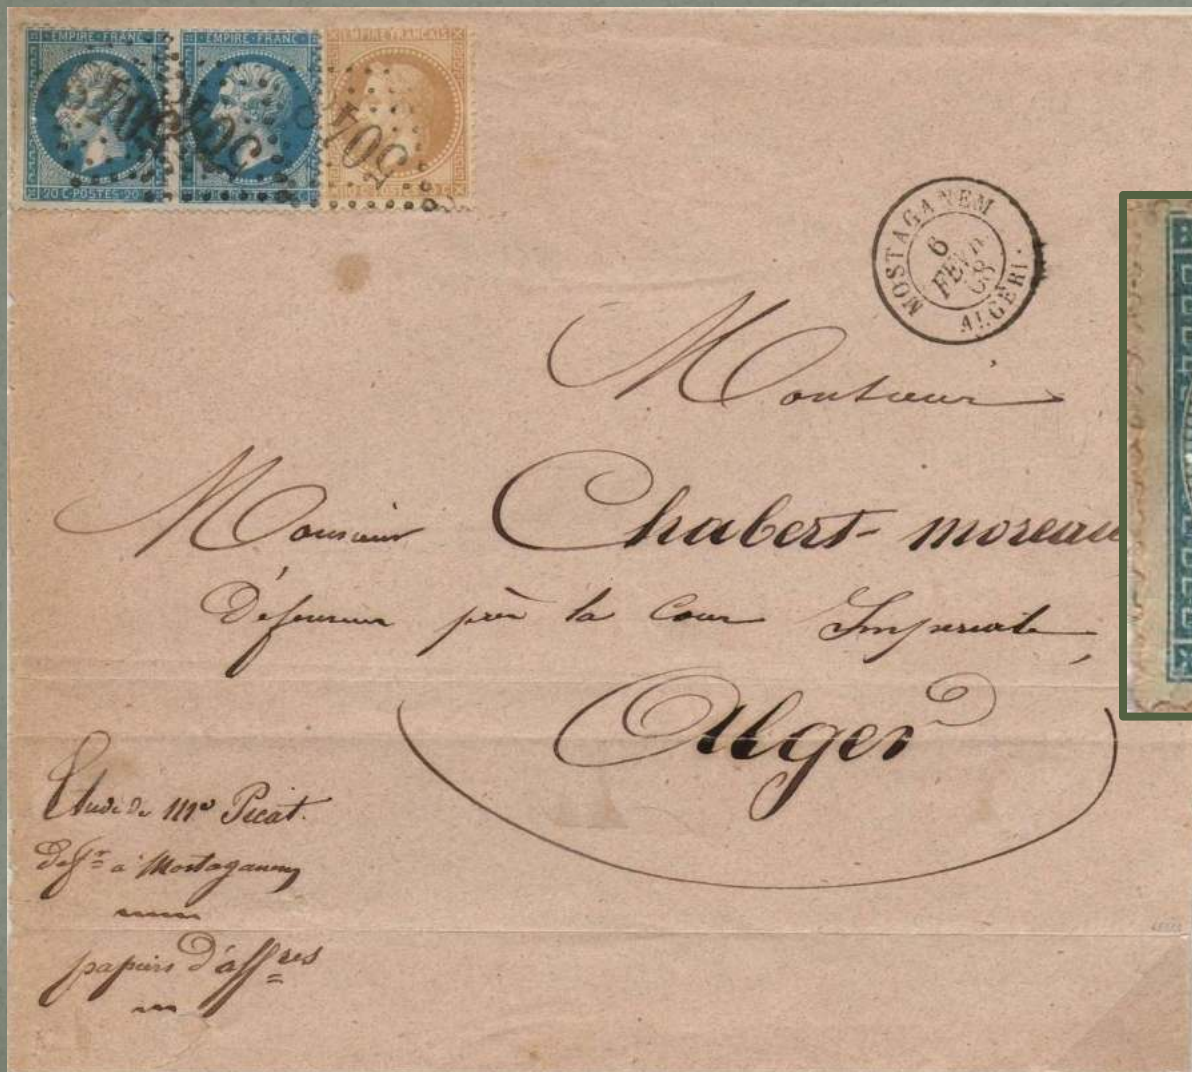 EMPIRE · FRANC · EMPIRE · FRANC · EMPIRE FRANÇAIS
5048 5048 5048
20 C · POSTES · 20
MOSTAGANEM
6
FEVR
68
ALGERI.
Monsieur
Monsieur Chabert-moreau
Défenseur près la Cour Impériale
Alger
Etude de Me Picat.
Defr à Mostaganem
papiers d'affres